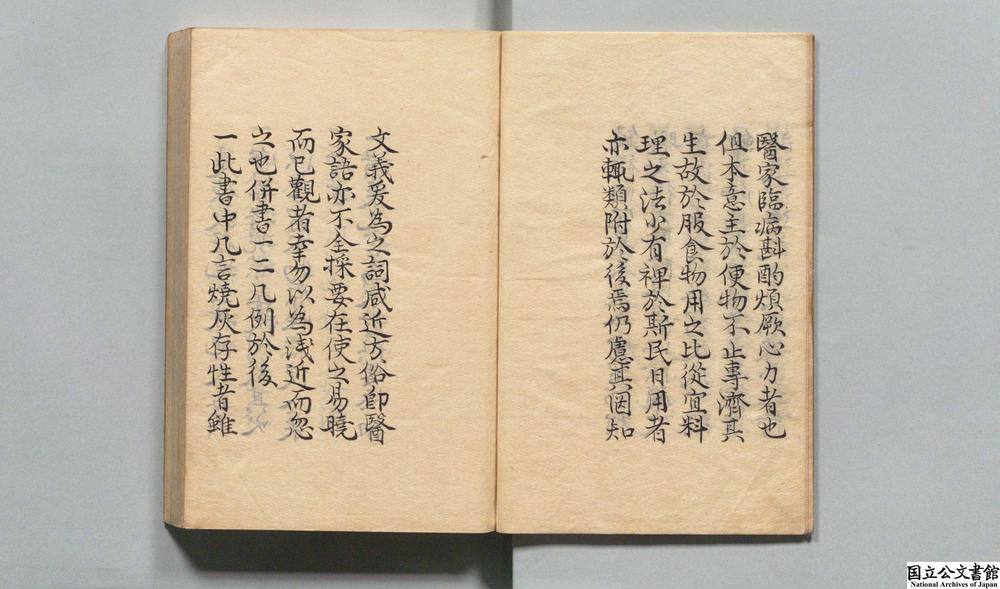 醫家臨病斟酌煩厥心力者也
但本意主於便物不止專濟其
生故於服食物用之比從宜料
理之法少有裨於斯民日用者
亦輒類附於後焉仍慮其罔知
文義爰為之詞咸近方俗卽醫
家語亦不全採要在使之易曉
而已觀者幸勿以為浅近而忽
之也併書一二凡例於後
一此書中凡言燒灰存性者雖
国立公文書館
National Archives of Japan